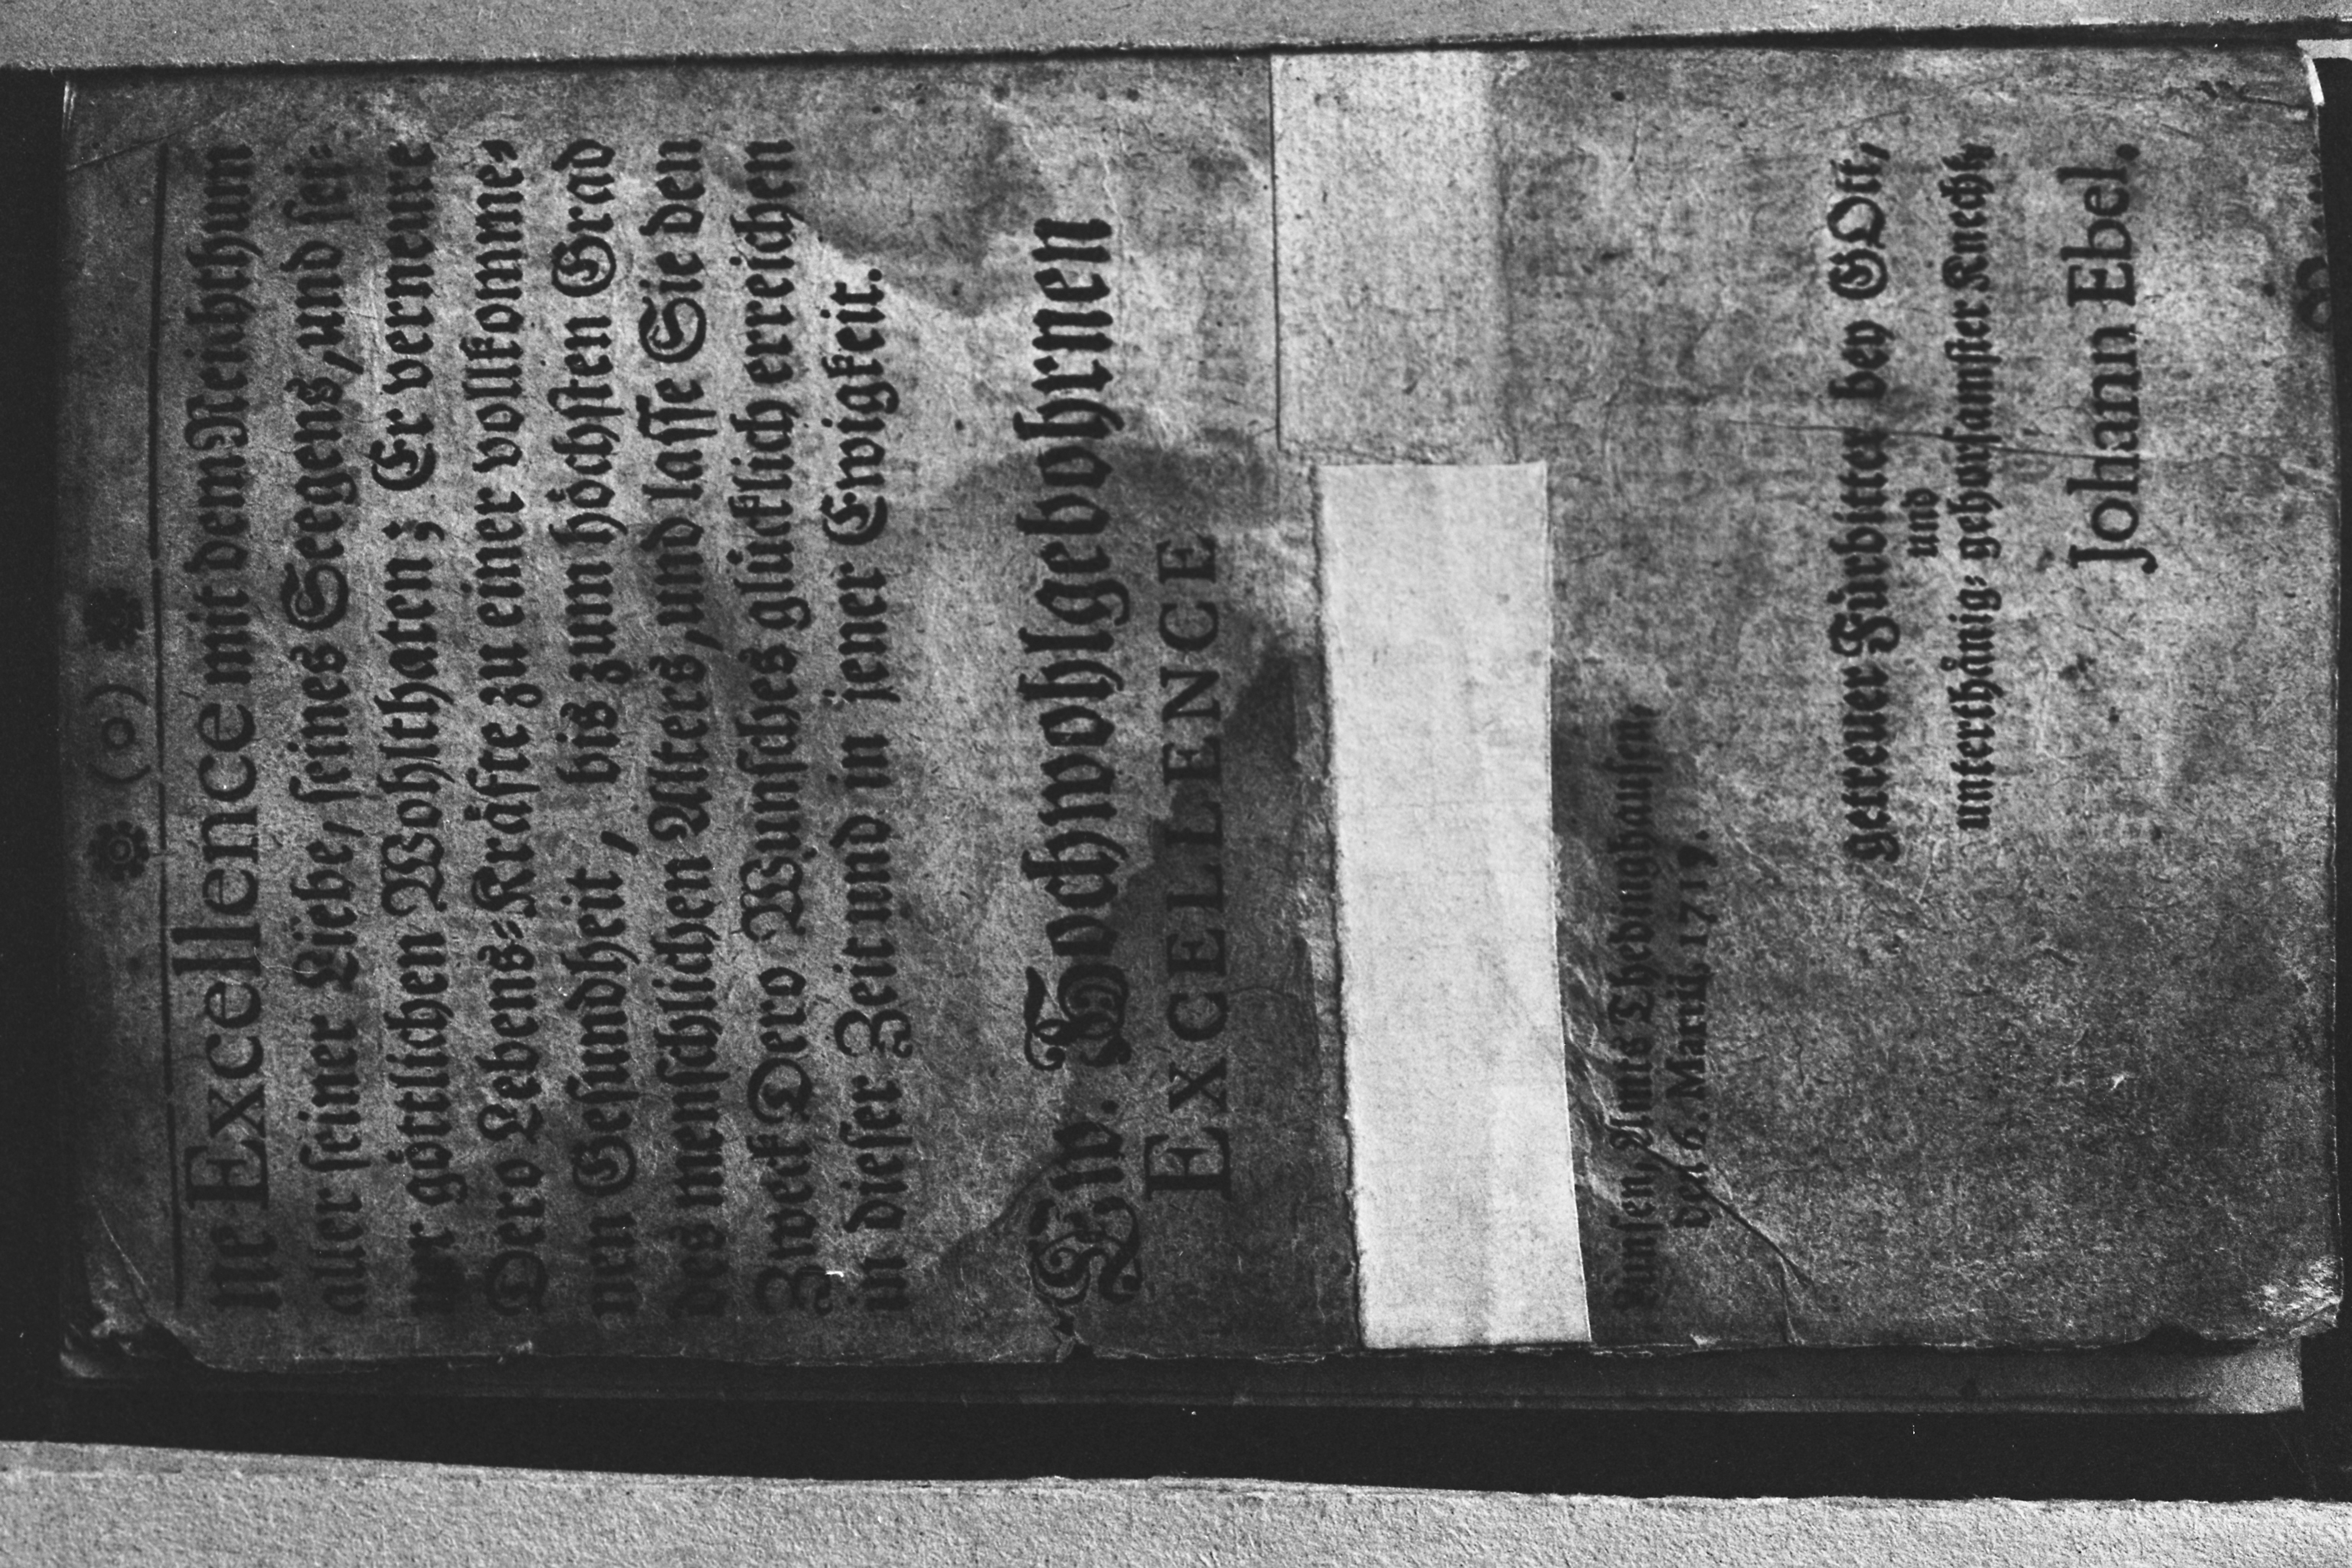 ❀ (o) ❀
ne Excellence mit dem Reichthum
aller seiner Liebe, seines Seegens, und sei-
ner göttlichen Wohlthaten; Er verneure
Dero Lebens-Kräfte zu einer vollkomme-
nen Gesundheit, bis zum höchsten Grad
des menschlichen Alters, und lasse Sie den
Zweck Dero Wunsches glücklich erreichen
in dieser Zeit und in jener Ewigkeit.
Ew. Hochwohlgebohrnen
EXCELLENCE
Amts Thedinghausen,
den 6. Martii, 1719.
getreuer Fürbitter bey GOtt,
und
unterthänig- gehorsamster Knecht,
Johann Ebel.